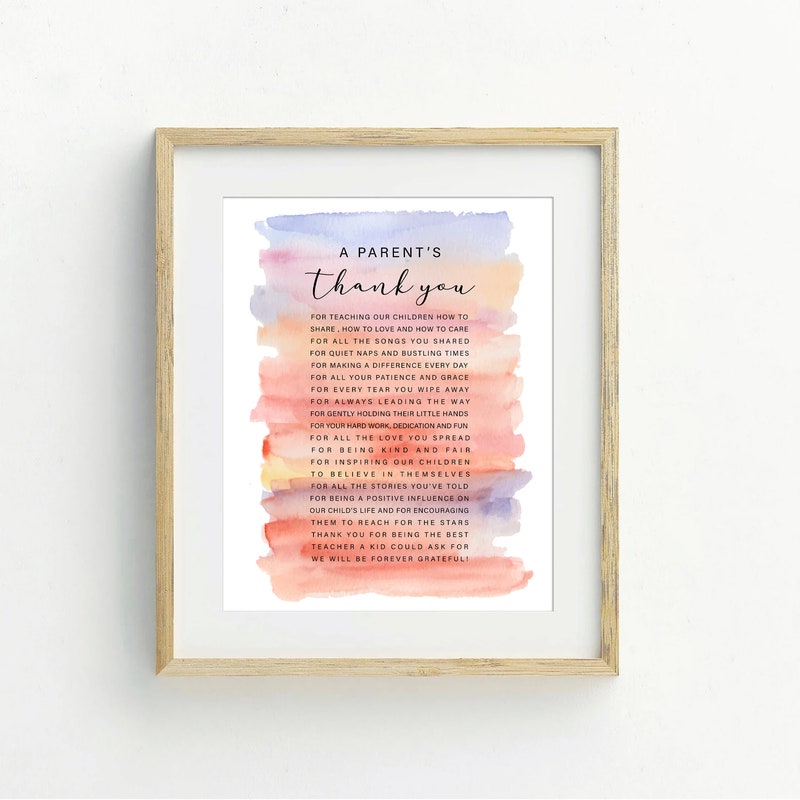 A PARENT'S
thank you
FOR TEACHING OUR CHILDREN HOW TO
SHARE , HOW TO LOVE AND HOW TO CARE
FOR ALL THE SONGS YOU SHARED
FOR QUIET NAPS AND BUSTLING TIMES
FOR MAKING A DIFFERENCE EVERY DAY
FOR ALL YOUR PATIENCE AND GRACE
FOR EVERY TEAR YOU WIPE AWAY
FOR ALWAYS LEADING THE WAY
FOR GENTLY HOLDING THEIR LITTLE HANDS
FOR YOUR HARD WORK, DEDICATION AND FUN
FOR ALL THE LOVE YOU SPREAD
FOR BEING KIND AND FAIR
FOR INSPIRING OUR CHILDREN
TO BELIEVE IN THEMSELVES
FOR ALL THE STORIES YOU'VE TOLD
FOR BEING A POSITIVE INFLUENCE ON
OUR CHILD'S LIFE AND FOR ENCOURAGING
THEM TO REACH FOR THE STARS
THANK YOU FOR BEING THE BEST
TEACHER A KID COULD ASK FOR
WE WILL BE FOREVER GRATEFUL!